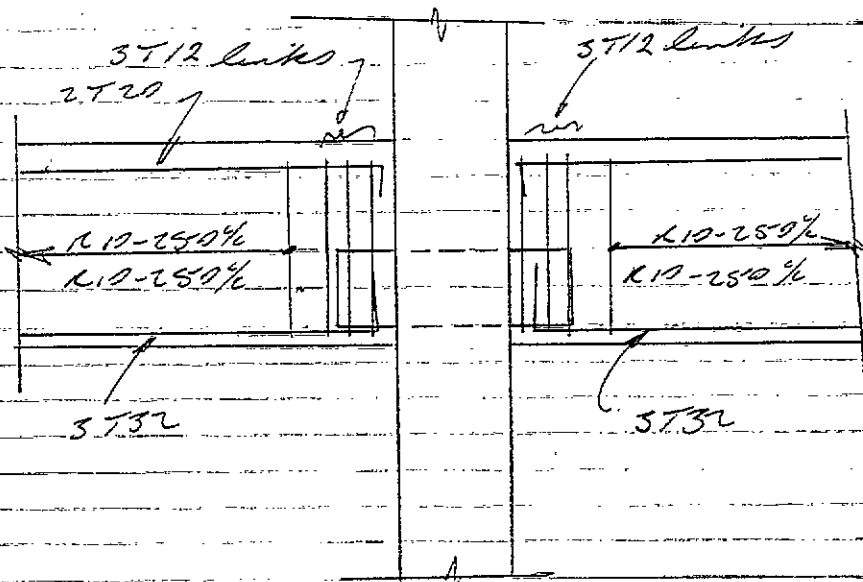 3T12 links
2T20
3T12 links
R10-250 c/c
R10-250 c/c
R10-250 c/c
R10-250 c/c
3T32
3T32